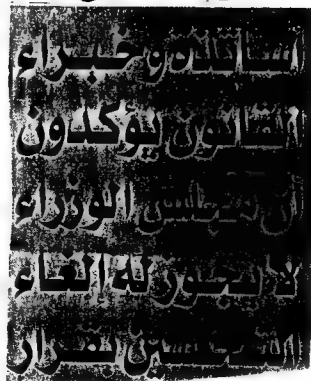 أساتذة وخبراء
القانون يؤكدون
أن مجلس الوزراء
لا يجوز له إلغاء
التحصين بقرار